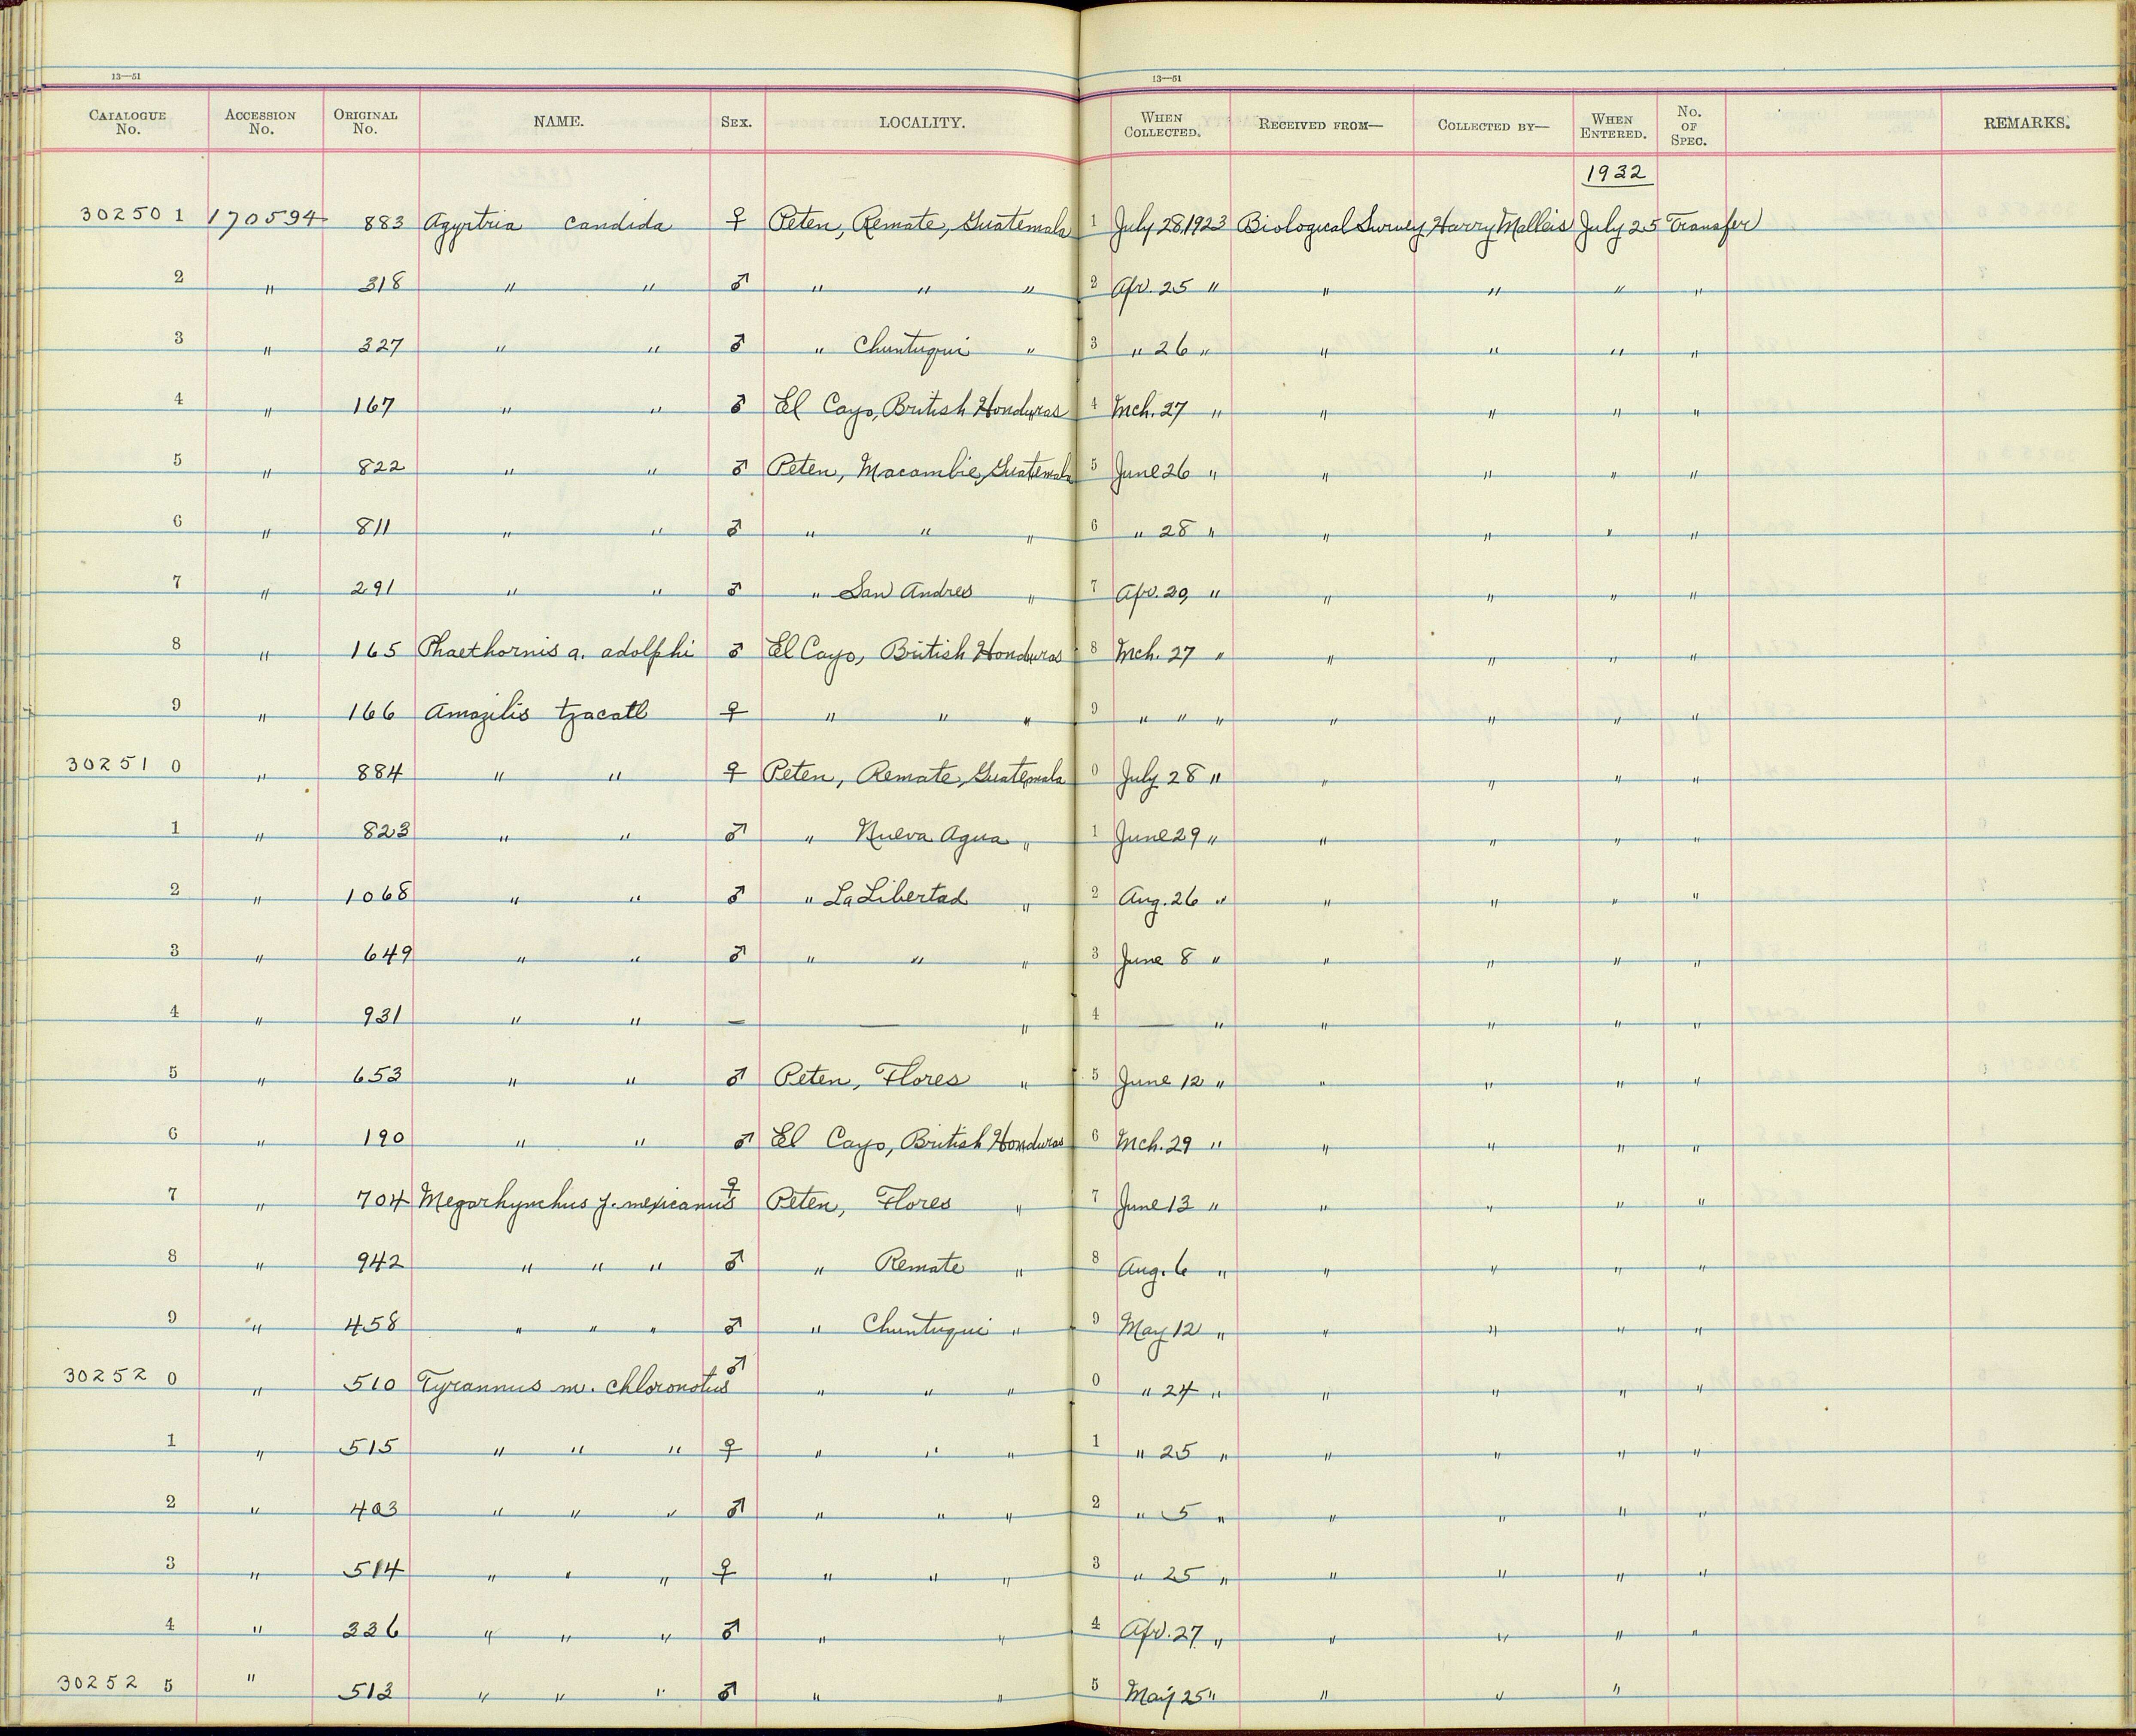 13—51 13—51
CATALOGUE No. ACCESSION No. ORIGINAL No. NAME. SEX. LOCALITY. WHEN COLLECTED. RECEIVED FROM— COLLECTED BY— WHEN ENTERED. No. OF SPEC. REMARKS.
1932
302501 170594 883 Agyrtria candida ♀ Peten, Remate, Guatemala 1 July 28, 1923 Biological Survey Harry Malleis July 25 Transfer
2 " 318 " " ♂ " " " 2 Apr. 25 " " " " "
3 " 327 " " ♂ " Chuntuqui " 3 " 26 " " " " "
4 " 167 " " ♂ El Cayo, British Honduras 4 Mch. 27 " " " " "
5 " 822 " " ♂ Peten, Macambie, Guatemala 5 June 26 " " " " "
6 " 811 " " ♂ " " " 6 " 28 " " " " "
7 " 291 " " ♂ " San Andres " 7 Apr. 20 " " " " "
8 " 165 Phaethornis a. adolphi ♂ El Cayo, British Honduras 8 Mch. 27 " " " " "
9 " 166 Amazilis tzacatl ♀ " " " 9 " " " " " " "
302510 " 884 " " ♀ Peten, Remate, Guatemala 0 July 28 " " " " "
1 " 823 " " ♂ " Nueva Agua " 1 June 29 " " " " "
2 " 1068 " " ♂ " La Libertad " 2 Aug. 26 " " " " "
3 " 649 " " ♂ " " " 3 June 8 " " " " "
4 " 931 " " — — " 4 — " " " " "
5 " 653 " " ♂ Peten, Flores " 5 June 12 " " " " "
6 " 190 " " ♂ El Cayo, British Honduras 6 Mch. 29 " " " " "
7 " 704 Megarhynchus p. mexicanus ♀ Peten, Flores " 7 June 13 " " " " "
8 " 942 " " " ♂ " Remate " 8 Aug. 6 " " " " "
9 " 458 " " " ♂ " Chuntuqui " 9 May 12 " " " " "
302520 " 510 Tyrannus m. chloronotus ♂ " " " 0 " 24 " " " " "
1 " 515 " " " ♀ " " " 1 " 25 " " " " "
2 " 403 " " " ♂ " " " 2 " 5 " " " " "
3 " 514 " " " ♀ " " " 3 " 25 " " " " "
4 " 336 " " " ♂ " " 4 Apr. 27 " " " " "
302525 " 513 " " " ♂ " " 5 May 25 " " " "